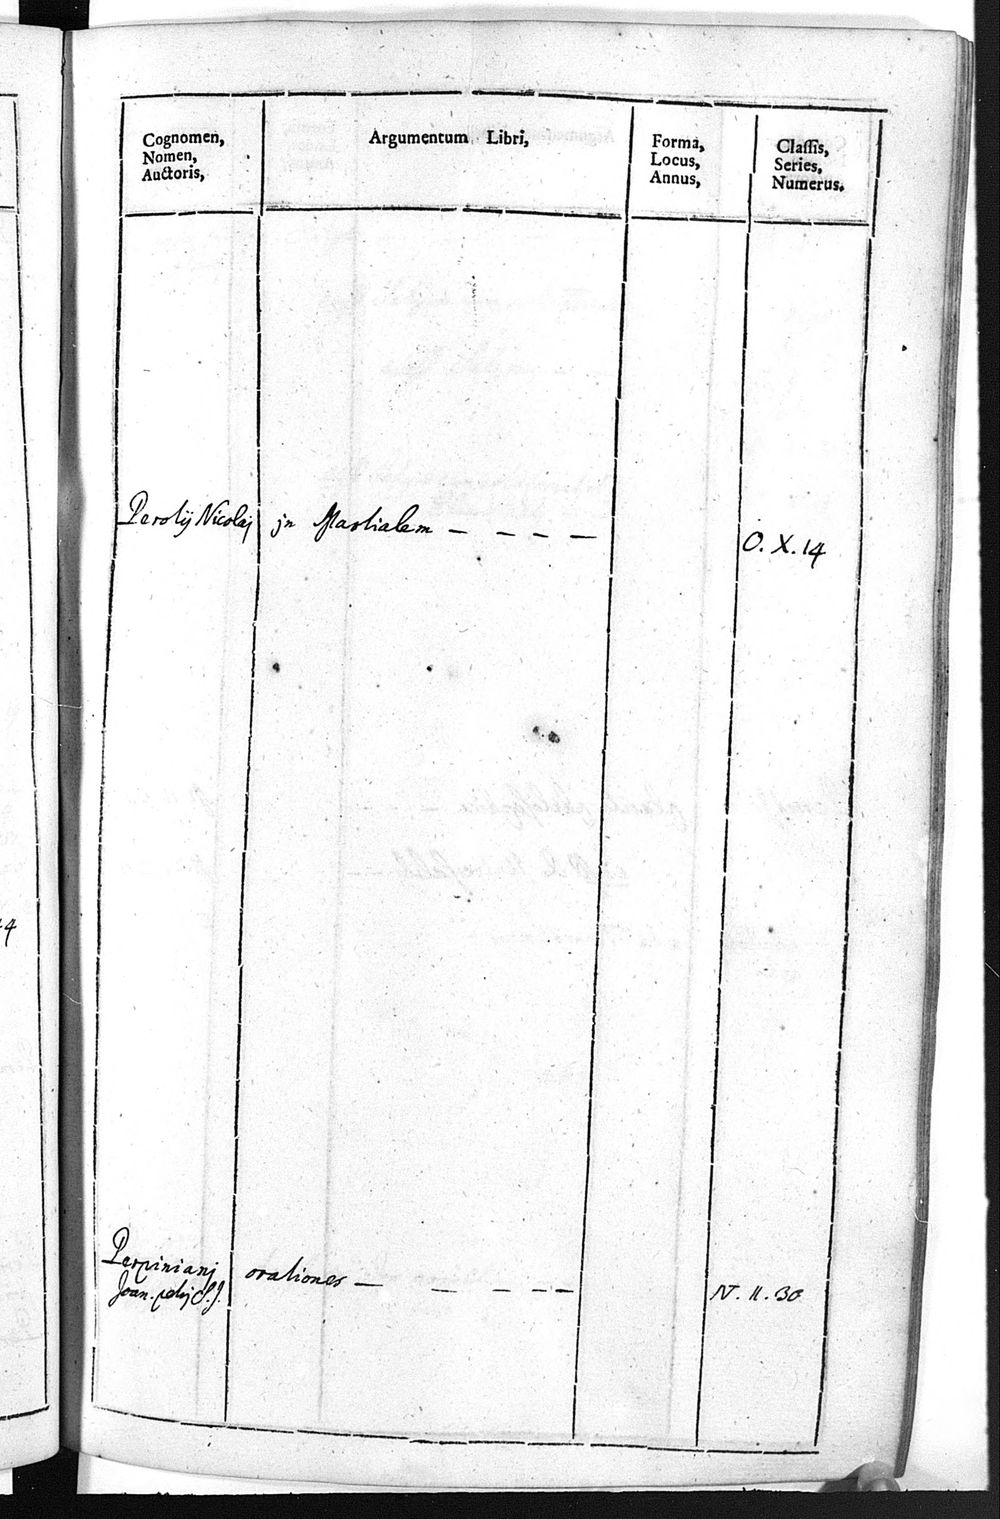 Cognomen,
Nomen,
Auctoris,
Argumentum Libri,
Forma,
Locus,
Annus,
Classis,
Series,
Numerus.
Perotij Nicolaj in Martialem – – – –
O. X. 14
Perpinianj
Joan. petrj S.J.
orationes – – – – –
N. II. 30
44